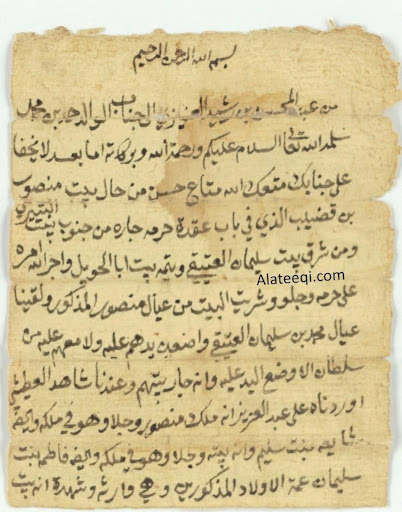 بسم الله الرحمن الرحيم
من عبد المحسن بن رشيد الى جناب الوالد حمد بن محمد
سلمه الله تعالى السلام عليكم ورحمة الله وبركاته اما بعد لا يخفا
على جنابك متعك الله متاع حسن من حال بيت منصور
بن قضيب الذي في باب عقدة حرمه جاره من جنوب بيت
ومن شرق بيت سليمان العتيقي وبتمه بيت ابا الحويل واجر الله امره
Alateeqi.com
على حرمه وجلو وشريت البيت من عيال منصور المذكور ولقينا
عيال محمد بن سليمان العتيقي واضعين يدهم عليه ولا معهم عليه من
سلطان الا وضع اليد عليه وانه جار بيتهم وعندنا شاهد
اوردناه على عبد العزيز انه ملك منصور وجلا وهو في ملكه وايضا
شايعه بنت سليم وانه بيته وجلا وهو في ملكه وايضا فاطمه بنت
سليمان عمة الاولاد المذكورين وهي وارثه وشهدة انه بيت